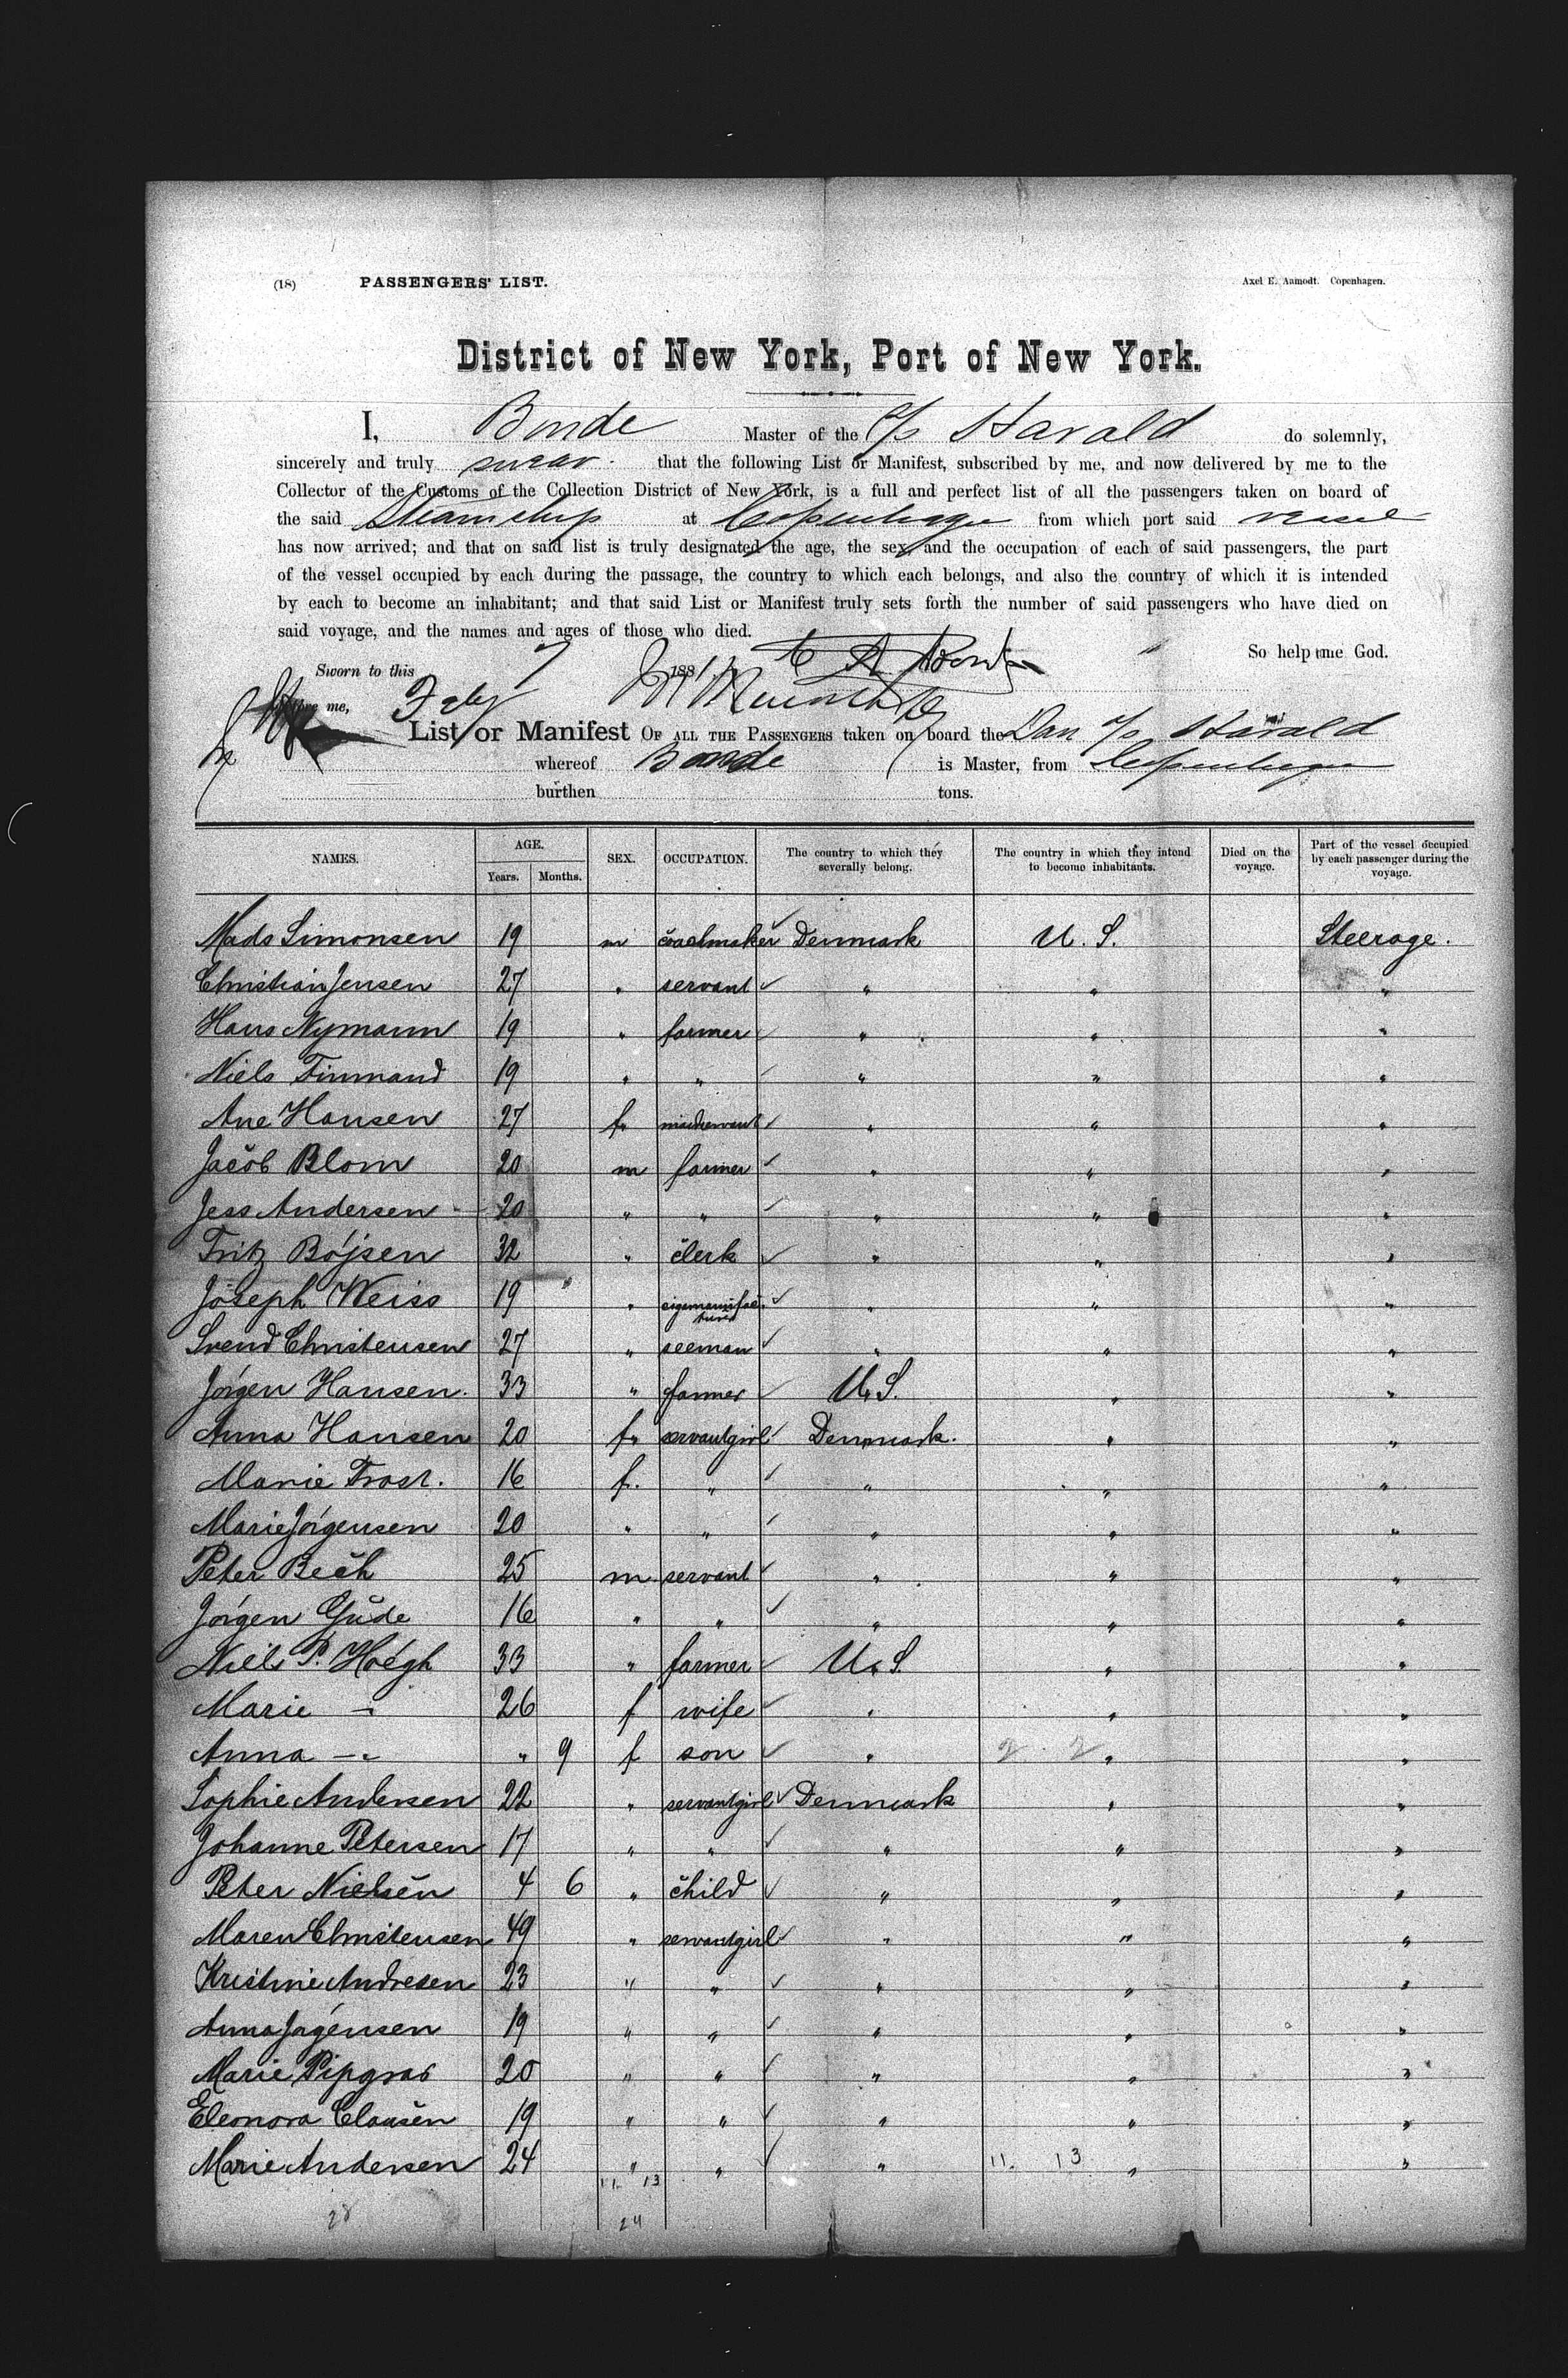 (18) PASSENGERS' LIST. Axel E. Aamodt. Copenhagen.
District of New York, Port of New York.
I, Bonde Master of the S/s Harald do solemnly,
sincerely and truly swear that the following List or Manifest, subscribed by me, and now delivered by me to the
Collector of the Customs of the Collection District of New York, is a full and perfect list of all the passengers taken on board of
the said Steamship at Copenhagen from which port said vessel
has now arrived; and that on said list is truly designated the age, the sex, and the occupation of each of said passengers, the part
of the vessel occupied by each during the passage, the country to which each belongs, and also the country of which it is intended
by each to become an inhabitant; and that said List or Manifest truly sets forth the number of said passengers who have died on
said voyage, and the names and ages of those who died.
So help me God.
Sworn to this 7 188
before me, Feby
List or Manifest OF ALL THE PASSENGERS taken on board the Dan S/s Harald
whereof Bonde is Master, from Copenhagen
burthen tons.
NAMES. AGE. Years. Months. SEX. OCCUPATION. The country to which they severally belong. The country in which they intend to become inhabitants. Died on the voyage. Part of the vessel occupied by each passenger during the voyage.
Mads Simonsen 19 m coachmaker Denmark U. S. Steerage.
Christian Jensen 27 " servant " " "
Hans Nymann 19 " farmer " " "
Niels Finmand 19 " " " " "
Ane Hansen 27 f. maidservant " " "
Jacob Blom 20 m farmer " " "
Jess Andersen 20 " " " " "
Fritz Böjsen 32 " clerk " " "
Joseph Weiss 19 " " " "
Svend Christensen 27 " seeman " " "
Jörgen Hansen. 33 " farmer U. S. " "
Anna Hansen 20 f. servantgirl Denmark. " "
Marie Frost. 16 f. " " " "
Marie Jörgensen 20 " " " " "
Peter Bech 25 m. servant " " "
Jörgen Gude 16 " " " " "
Niels P. Hoëgh 33 " farmer U. S. " "
Marie -"- 26 f wife " " "
Anna -"- " 9 f son " 2 2 " "
Sophie Andersen 22 " servantgirl Denmark " "
Johanne Petersen 17 " " " " "
Peter Nielsen 4 6 " child " " "
Maren Christensen 49 " servantgirl " " "
Kristine Andresen 23 " " " " "
Anna Jörgensen 19 " " " " "
Marie Pipgras 20 " " " " "
Eleonora Clausen 19 " " " " "
Marie Andersen 24 " " " 11. 13 " "
11. 13
28 24